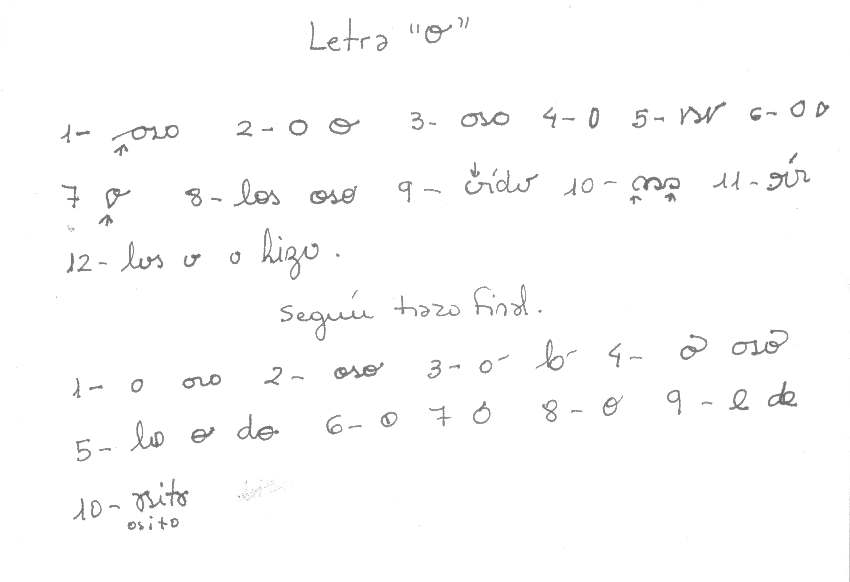 Letra "o"
1- oso 2- o o 3- oso 4- o 5- oso 6- o o
7 o 8- los oso 9- oído 10- oso 11- oír
12- los o o hizo.
Según trazo final.
1- o oso 2- oso 3- o b 4- o oso
5- lo o do 6- o 7 o 8- o 9- l de
10- osito
osito